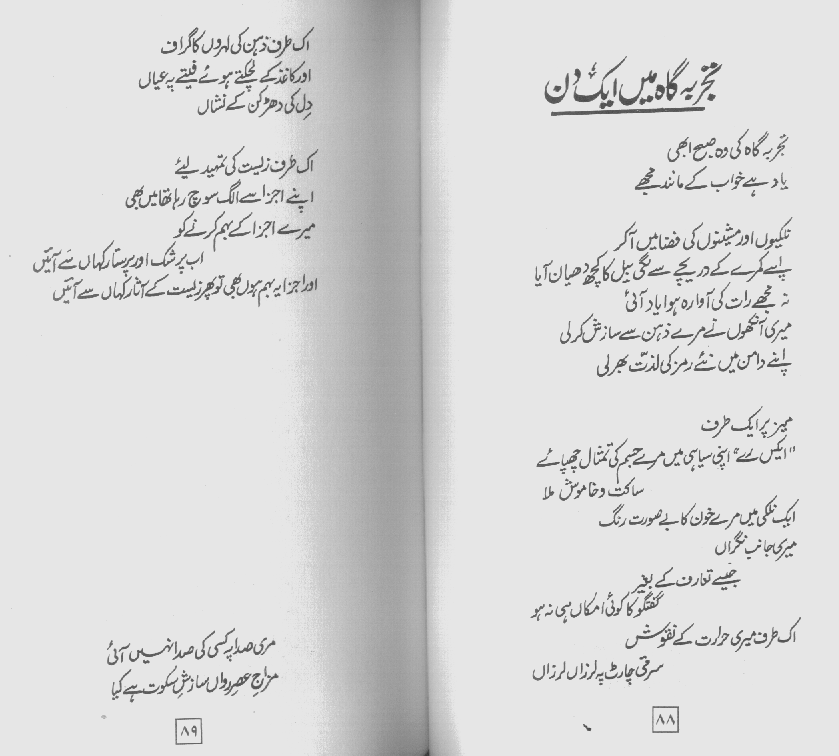 تجربہ گاہ میں ایک دن
تجربہ گاہ کی وہ صبح ابھی
یاد ہے خواب کے مانند مجھے
نلکیوں اور مشینوں کی فضا میں آ کر
اپنے کمرے کے دریچے سے لگی بیل کا کچھ دھیان آیا
نہ مجھے رات کی آوارہ ہوا یاد آئی
میری آنکھوں نے مرے ذہن سے سازش کر لی
اپنے دامن میں نئے رمز کی لذت بھر لی
میز پر ایک طرف
"ایکس رے" اپنی سیاہی میں مرے جسم کی تمثال چھپائے
ساکت و خاموش ملا
ایک نلکی میں مرے خون کا بے صورت رنگ
میری جانب نگراں
جیسے تعارف کے بغیر
گفتگو کا کوئی امکاں ہی نہ ہو
اک طرف میری حرارت کے نقوش
سرقی چارٹ پہ لرزاں لرزاں
۸۸
اک طرف ذہن کی لہروں کا گراف
اور کاغذ کے لچکتے ہوئے فیتے پہ عیاں
دل کی دھڑکن کے نشاں
اک طرف زیست کی تمہید لیے
اپنے اجزا سے الگ سوچ رہا تھا میں بھی
میرے اجزا کے بہم کرنے کو
اب پرشک اور پرستار کہاں سے آئیں
اور اجزا یہ بہم ہوں بھی تو پھر زیست کے آثار کہاں سے آئیں
مری صدا پہ کسی کی صدا نہیں آئی
مزاجِ عصرِ رواں سازشِ سکوت ہے کیا
۸۹